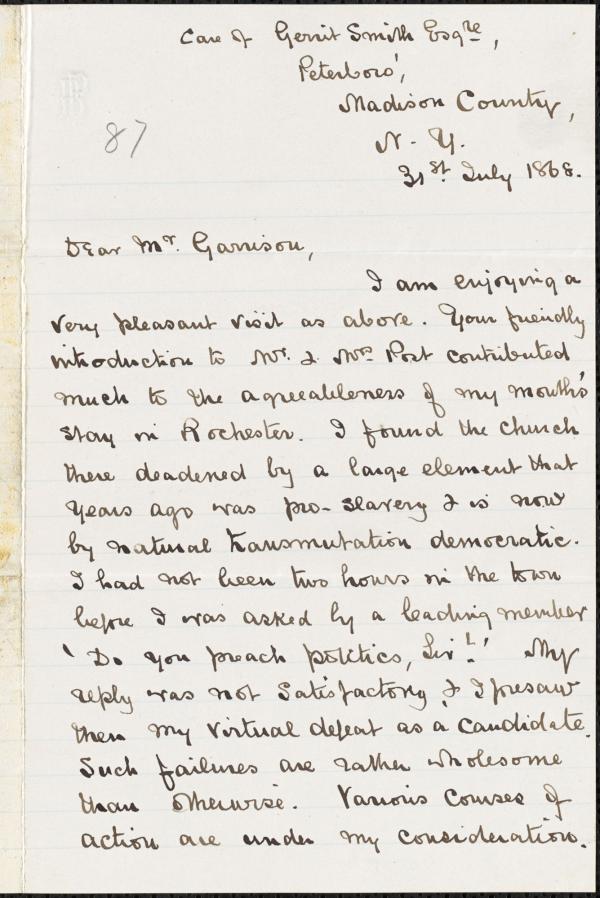 Care of Gerrit Smith Esqre,
Peterboro',
Madison County,
N. Y.
31st July 1868.
87
Dear Mr. Garrison,
I am enjoying a
very pleasant visit as above. Your friendly
introduction to Mr. & Mrs Post contributed
much to the agreeableness of my month's
stay in Rochester. I found the Church
there deadened by a large element that
years ago was pro-slavery & is now
by natural transmutation democratic.
I had not been two hours in the town
before I was asked by a leading member
'Do you preach politics, Sir!' My
reply was not satisfactory, & I foresaw
then my virtual defeat as a candidate.
Such failures are rather wholesome
than otherwise. Various courses of
action are under my consideration.